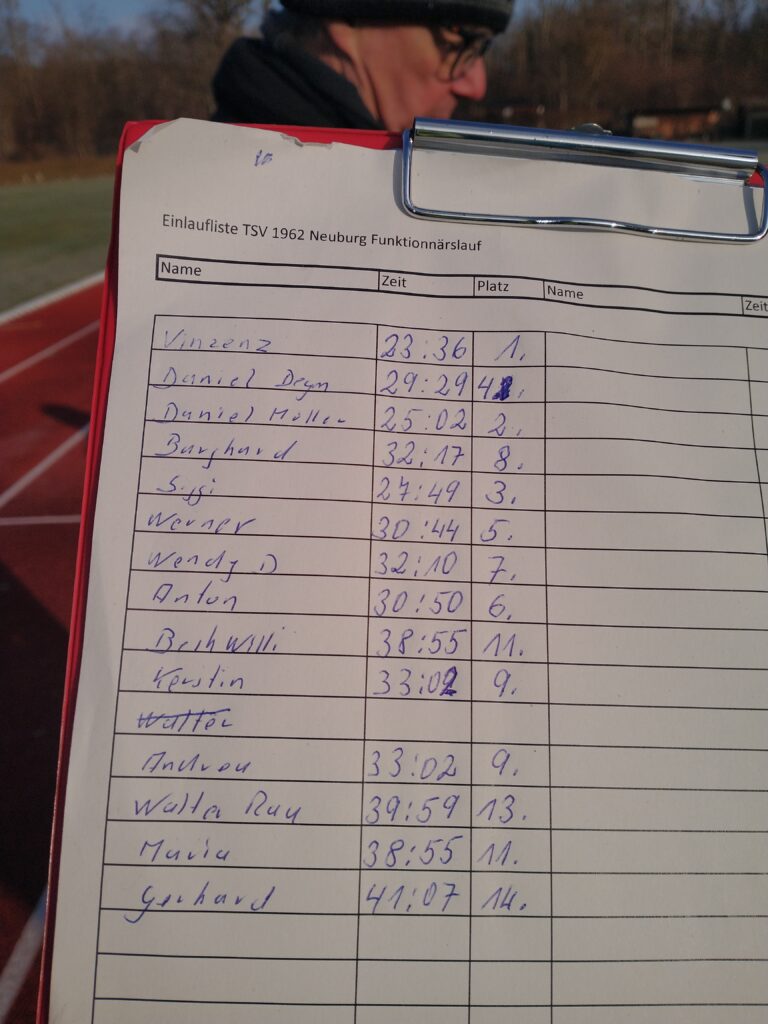 Einlaufliste TSV 1962 Neuburg Funktionnärslauf
Name Zeit Platz Name Zeit
Vinzenz 23:36 1.
Daniel Deym 29:29 4.
Daniel Möller 25:02 2.
Burghard 32:17 8.
Siggi 27:49 3.
Werner 30:44 5.
Wendy D 32:10 7.
Anton 30:50 6.
38:55 11.
Kerstin 33:02 9.
Walter
Andrea 33:02 9.
Walter 39:59 13.
Maria 38:55 11.
Gerhard 41:07 14.